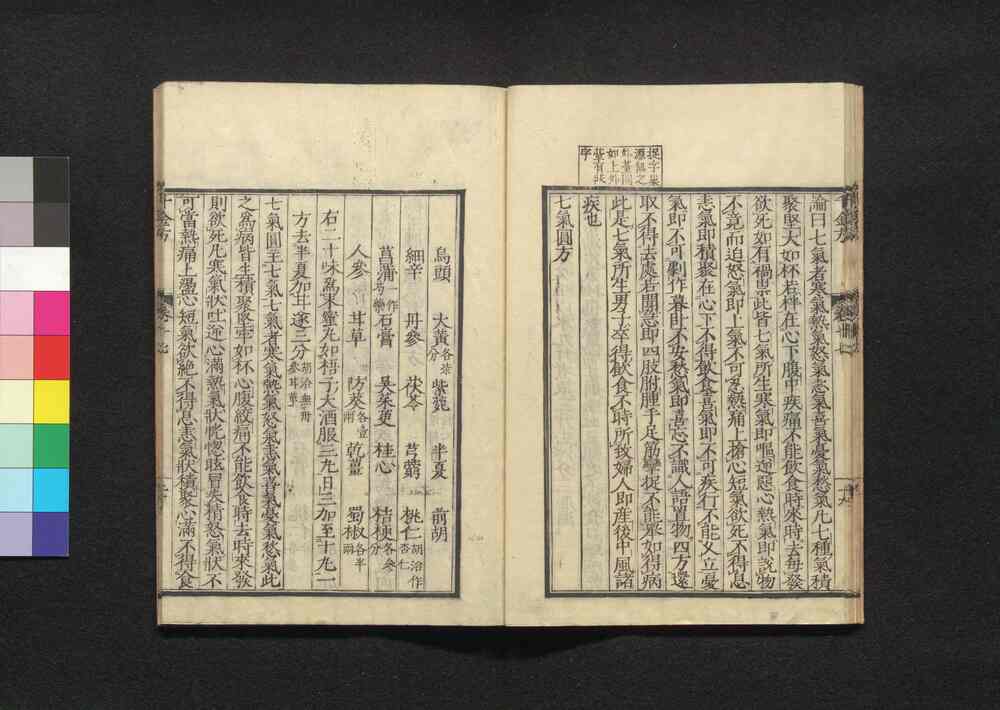 論曰七氣者寒氣熱氣怒氣恚氣喜氣憂氣愁氣凡七種氣積
聚堅大如杯若柈在心下腹中疾痛不能飲食時來時去每發
欲死如有禍祟此皆七氣所生寒氣即嘔逆惡心熱氣即說物
不竟而迫怒氣即上氣不可忍熱痛上搶心短氣欲死不得息
恚氣即積聚在心下不得飲食喜氣即不可疾行不能久立憂
氣即不可劇作暮臥不安愁氣即喜忘不識人語置物四方還
取不得去處若聞急即四肢胕腫手足筋攣捉不能舉如得病
此是七氣所生男子卒得飲食不時所致婦人即產後中風諸
疾也
七氣圓方
烏頭 大黃各柒分 紫菀 半夏 前胡
細辛 丹參 茯苓 芎藭 桃仁胡洽作杏仁
菖蒲一作芍藥 石膏 吳茱萸 桂心 桔梗各叄分
人參 甘草 防葵各壹兩 乾薑 蜀椒各半兩
右二十味為末蜜丸如梧子大酒服三丸日三加至十丸一
方去半夏加甘遂三分胡洽無丹參甘草
七氣圓主七氣七氣者寒氣熱氣怒氣恚氣喜氣憂氣愁氣此
之為病皆生積聚堅牢如杯心腹絞痛不能飲食時去時來發
則欲死凡寒氣狀吐逆心滿熱氣狀恍惚眩冒失精怒氣狀不
可當熱痛上盪心短氣欲絕不得息恚氣狀積聚心滿不得食